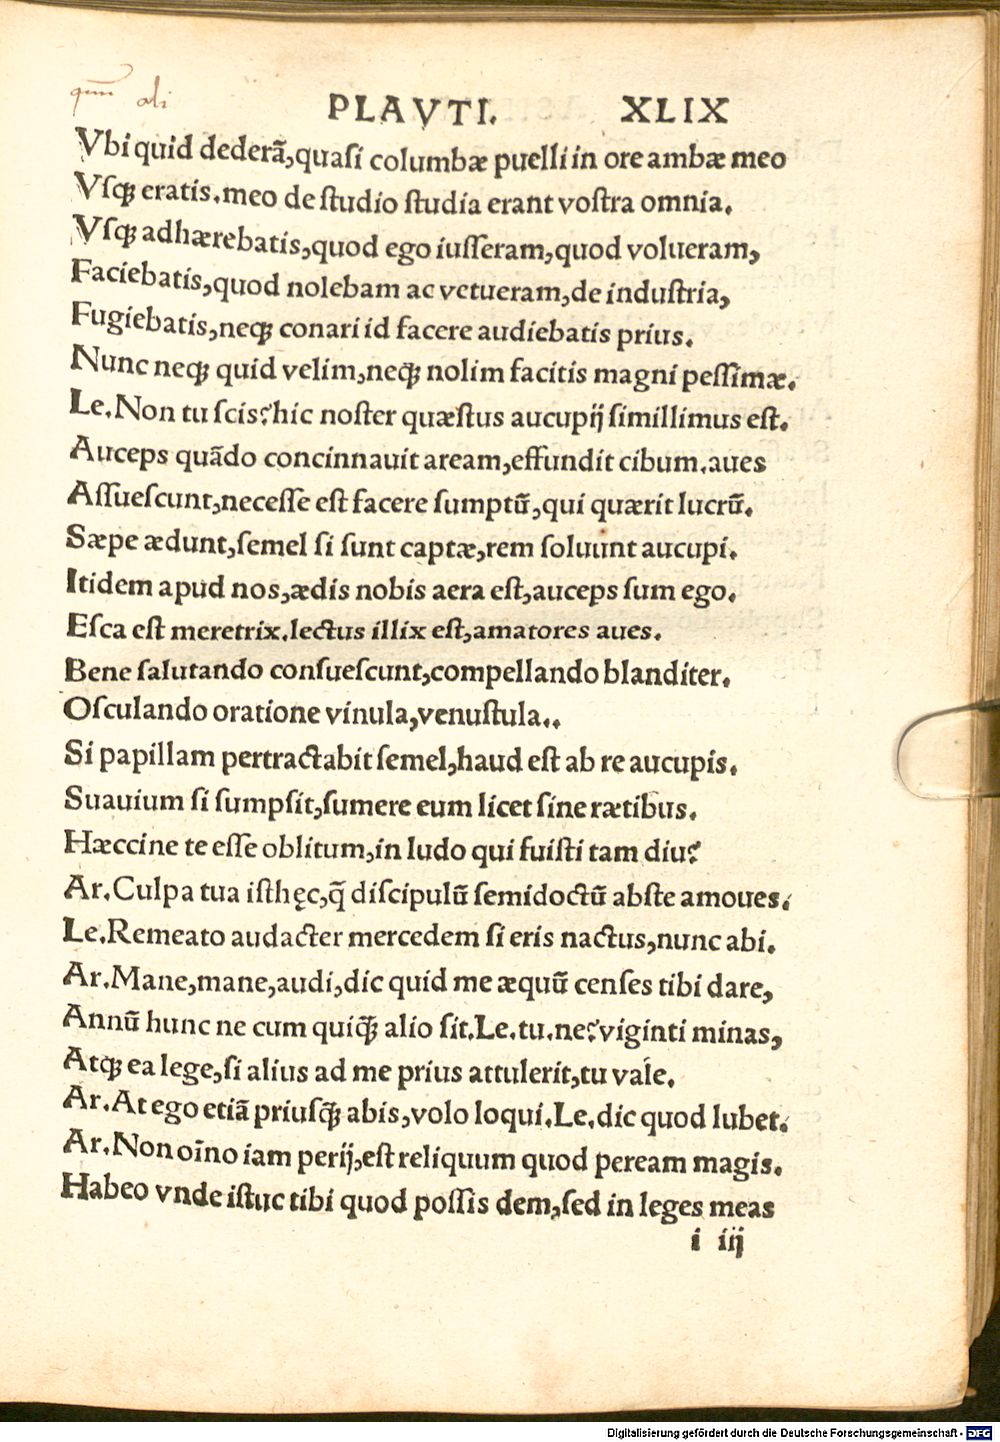 qum̄ ali
PLAVTI. XLIX
Vbi quid dederã,quasi columbæ puelli in ore ambæ meo
Vsqꝫ eratis.meo de studio studia erant vostra omnia.
Vsqꝫ adhærebatis,quod ego iusseram,quod volueram,
Faciebatis,quod nolebam ac vetueram,de industria,
Fugiebatis,neqꝫ conari id facere audiebatis prius.
Nunc neqꝫ quid velim,neqꝫ nolim facitis magni pessimæ.
Le.Non tu scis?hic noster quæstus aucupij simillimus est.
Auceps quãdo concinnauit aream,effundit cibum.aues
Assuescunt,necesse est facere sumptũ,qui quærit lucrũ.
Sæpe ædunt,semel si sunt captæ,rem soluunt aucupi.
Itidem apud nos,ædis nobis aera est,auceps sum ego.
Esca est meretrix.lectus illix est,amatores aues.
Bene salutando consuescunt,compellando blanditer.
Osculando oratione vinula,venustula..
Si papillam pertractabit semel,haud est ab re aucupis.
Suauium si sumpsit,sumere eum licet sine rætibus.
Hæccine te esse oblitum,in ludo qui fuisti tam diu?
Ar.Culpa tua isthęc,q̃ discipulũ semidoctũ abste amoues.
Le.Remeato audacter mercedem si eris nactus,nunc abi.
Ar.Mane,mane,audi,dic quid me æquũ censes tibi dare,
Annũ hunc ne cum quiqꝫ̃ alio sit.Le.tu.ne?viginti minas,
Atqꝫ ea lege,si alius ad me prius attulerit,tu vale.
Ar.At ego etiã priusqꝫ̃ abis,volo loqui.Le.dic quod lubet.
Ar.Non oĩno iam perij,est reliquum quod peream magis.
Habeo vnde istuc tibi quod possis dem,sed in leges meas
i iij
Digitalisierung gefördert durch die Deutsche Forschungsgemeinschaft - DFG